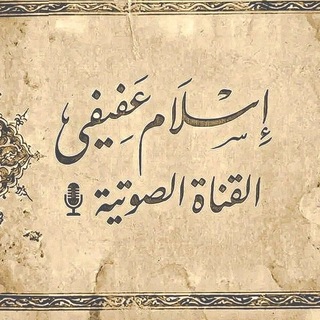 إِسْلَام عَفِيفي
القناة الصوتية